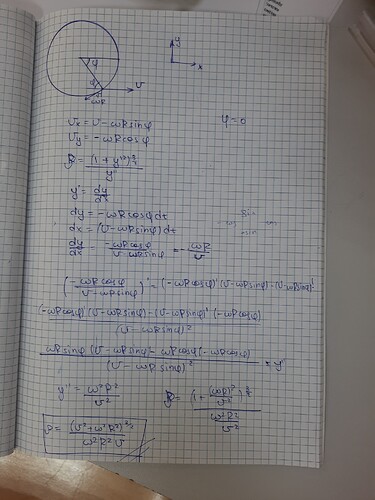 y
x
φ
α
v
ωR
v_x = v - ωR sinφ
φ = 0
v_y = -ωR cosφ
R = (1 + y'²)^(3/2) / y''
y' = dy/dx
dy = -ωR cosφ dt
dx = (v - ωR sinφ) dt
dy/dx = -ωR cosφ / (v - ωR sinφ) = -ωR/v
(-ωR cosφ / (v - ωR sinφ))' = (-ωR cosφ)' (v - ωR sinφ) - (v - ωR sinφ)'
(-ωR cosφ)' (v - ωR sinφ) - (v - ωR sinφ)' (-ωR cosφ) / (v - ωR sinφ)²
ωR sinφ (v - ωR sinφ) - ωR cosφ (-ωR cosφ) / (v - ωR sinφ)² = y''
y'' = ω²R²/v²
R = (1 + (ωR)²/v²)^(3/2) / (ω²R²/v²)
ρ = (v² + ω²R²)^(3/2) / (ω²R² v)